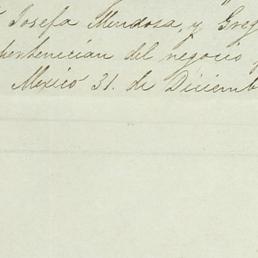 Josefa Mendosa, y Greg
pertenecian del negocio
Mexico 31. de Diciemb